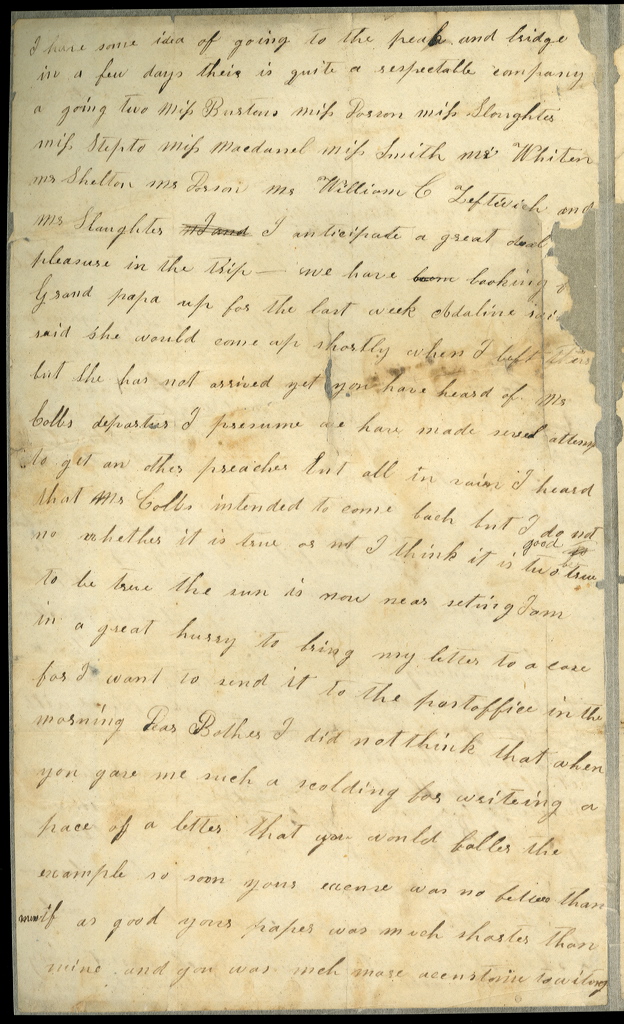 I have some idea of going to the peak and bridge
in a few days their is quite a respectable company
a going two miss Burtons miss Dorson miss Sloughter
miss Stepto miss Macdanel miss Smith mr Whiten
mr Shelton mr Dorson mr William C Leftwich and
mr Slaughter I and I anticipate a great deal
pleasure in the trip — we have been looking
Grand papa up for the last week Adaline
said she would come up shortly when I left
but she has not arrived yet you have heard of Mr
Cobbs departure I presume we have made sevel attemp
to get an other preacher but all in vain I heard
that Mr Cobbs intended to come back but I do not
no whether it is true or not I think it is two good
to be true the sun is now near seting I am
in a great hurry to bring my letter to a close
for I want to send it to the postoffice in the
morning Dear Bother I did not think that when
you gave me such a scolding for writeing a
pace off a letter that you would foller the
example so soon your excuse was no better than
mine if as good your paper was much shorter than
mine and you was mch more accustom to writing